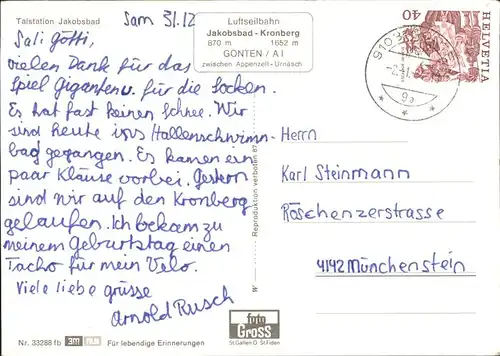 Talstation Jakobsbad
Sam 31.12
Luftseilbahn
Jakobsbad - Kronberg
870 m 1652 m
GONTEN / A I
zwischen Appenzell - Urnäsch
HELVETIA
40
9103
-2.-1.
9a
Sali Götti,
vielen Dank für das
Spiel Giganten u. für die Socken.
Es hat fast keinen Schnee. Wir
sind heute ins Hallenschwimm-
bad gegangen. Es kamen ein
paar Kläuse vorbei. Gestern
sind wir auf den Kronberg
gelaufen. Ich bekam zu
meinem Geburtstag einen
Tacho für mein Velo.
Viele liebe grüsse
Arnold Rusch
Reproduktion verboten 87
W
Herrn
Karl Steinmann
Röschenzerstrasse
4142 Münchenstein
foto
GROSS
St. Gallen O St. Fiden
Nr. 33288 fb 3M FILM Für lebendige Erinnerungen